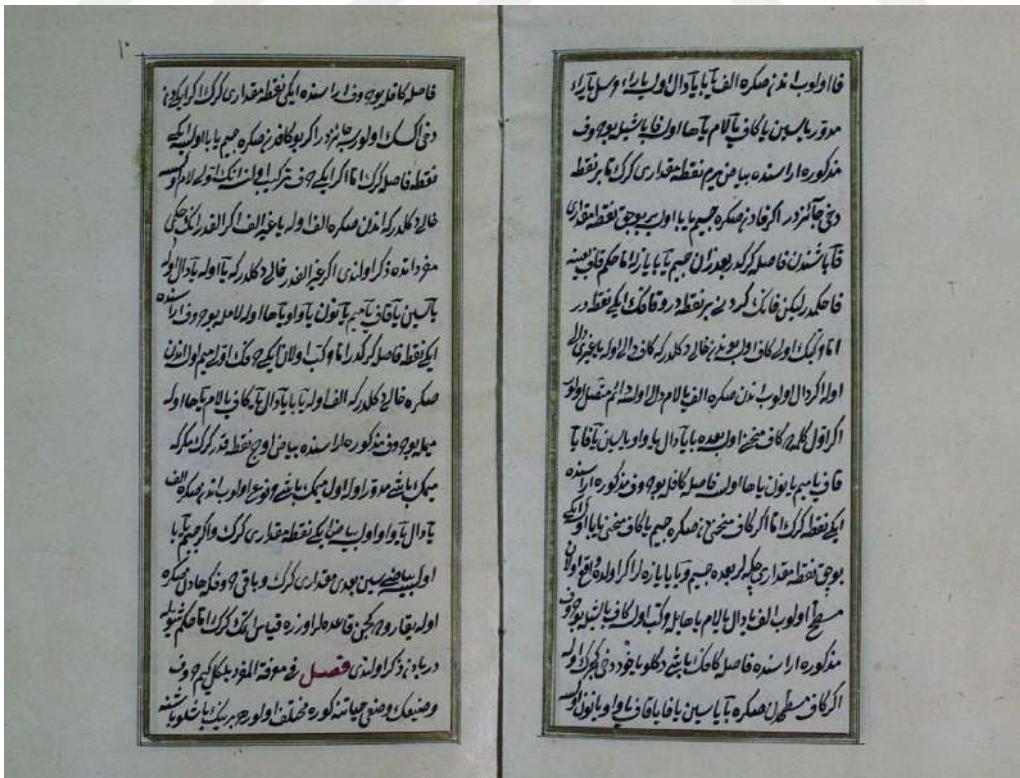 فا اولوب اندن صكره الف يا با يا دال اولسه يا راء مرسل يا راء
مدور يا سين يا كاف يا لام يا ها اولسه فا باشيله بو حروف
مذكوره اراسنده بياض يرم نقطه مقدارى كرك تا بر نقطه
دخى جائزدر اكر فا دن صكره جيم يا با اولسه بر بوجق نقطه مقدارى
فا باشندن فاصله كركدر بعده ان جيم يا با يازه اما حكم قاف بعينه
فا حكمدر ليكن فانك كردنى بر نقطه در و قافك ايكى نقطه در
اما و كتبك اولى كاف اولسه بوندن خالى دكلدر كه كاف دالى اوله يا غيرى دالى
اوله اكر دال اولوب اندن صكره الف يا لام دال اولسه دائم متصل اولور
اكر اول كلمه كاف منحنى اولسه بعده با يا دال يا واو يا سين يا فا يا
قاف يا ميم يا نون يا ها اولسه فاصله كافله بو حروف مذكوره اراسنده
ايكى نقطه كرك اما اكر كاف منحنى دن صكره جيم يا كاف منحنى يا با اوله ايكى
بوجق نقطه مقدارى چكيلر بعده جيم و يا با يازه لر اكر اولده واقع اولان
مسطح اولوب الف يا دال يا لام يا ها ايله مركب اولسه كاف باشيله بو حروف
مذكوره اراسنده فاصله كافك باشى دكلو يا خود دخى كجرك اوله
اكر كاف مسطحدن صكره با يا سين يا فا يا قاف يا واو يا نون اولسه
فاصله كافله بو حروف اراسنده ايكى نقطه مقدارى كرك اكر ايكيدن
دخى اكسك اولورسه جائزدر اكر بو كافدن صكره جيم يا با اولسه ايكى
نقطه فاصله كرك اما اكر ايكى حرف تركيب اولسه انك اولى لام اولسه
خالى دكلدر كه اندن صكره الف اوله يا غير الف اكر الفدر انك حكمى
مفرداتده ذكر اولندى اكر غير الفدر خالى دكلدر كه با اوله يا دال اوله
يا سين يا قاف يا ميم يا نون يا واو يا ها اوله لامله بو حروف اراسنده
ايكى نقطه فاصله كركدر اما مركب اولان ايكى حرفك اولى ميم اولسه اندن
صكره خالى دكلدر كه الف اوله يا با يا دال يا كاف يا لام يا ها اوله
ميمله بو حروف مذكوره اراسنده بياض اوج نقطه قدر كرك مكر كه
ميمك باشى مدور اوله اول ميمك باشى وقوع اولوب اندن صكره الف
يا دال يا واو اولسه بياض ايكى نقطه مقدارى كرك و اكر جيم يا با
اولسه بياضى سين بعدى مقدارى كرك و باقى حروف كه هادن صكره
اوله بقارو كجن قاعده لر اوزره قياس اتمك كرك اما حكم شويله
در ياده ذكر اولندى فصل فى معرفة المفرد بلكل كيم حروف
وضعنك وضعى حياتنه كوره مختلف اولور هر برينك باشلو باشنه